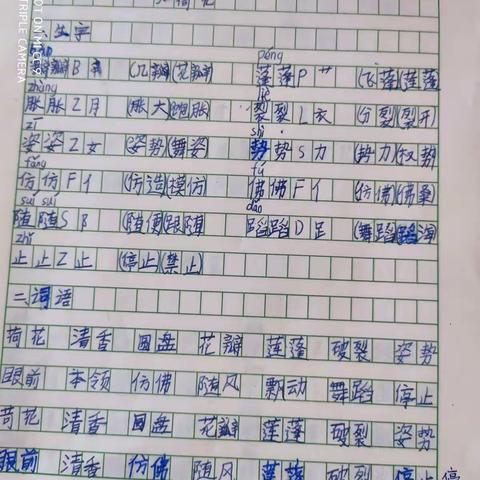 荷花
一、生字
bàn péng
瓣瓣B 瓣 (几瓣)(花瓣) 蓬蓬P艹 (飞蓬)(莲蓬
zhàng liè
胀胀Z月 (胀大)(膨胀 裂裂L衣 (分裂)(裂开)
zī shì
姿姿Z女 (姿势)(舞姿 势势S力 (势力)(权势
fǎng fú
仿仿F亻 (仿造)(模仿) 佛佛F亻 (仿佛)(佛桑)
suí suí dǎo
随随S阝 (随便)(跟随 蹈蹈D足 (舞蹈)(蹈海
zhǐ
止止Z止 (停止)(禁止)
二、词语
荷花 清香 圆盘 花瓣 莲蓬 破裂 姿势
眼前 本领 仿佛 随风 飘动 舞蹈 停止
荷花 清香 圆盘 花瓣 莲蓬 破裂 姿势
眼前 清香 仿佛 随风 莲蓬 破裂 停止 停
SHOT ON MI CC 9
TRIPLE CAMERA